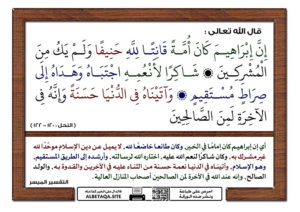 قال الله تعالى :
إِنَّ إِبْرَاهِيمَ كَانَ أُمَّةً قَانِتًا لِلَّهِ حَنِيفًا وَلَمْ يَكُ مِنَ
الْمُشْرِكِينَ ۞ شَاكِرًا لِأَنْعُمِهِ اجْتَبَاهُ وَهَدَاهُ إِلَى
صِرَاطٍ مُسْتَقِيمٍ ۞ وَآتَيْنَاهُ فِي الدُّنْيَا حَسَنَةً وَإِنَّهُ فِي
الْآخِرَةِ لَمِنَ الصَّالِحِينَ
(النحل: ١٢٠ - ١٢٢)
أي إن إبراهيم كان إمامًا في الخير، وكان طائعا خاضعًا لله، لا يميل عن دين الإسلام موحِّدًا لله
غير مشرك به، وكان شاكرًا لنعم الله عليه، اختاره الله لرسالته، وأرشده إلى الطريق المستقيم،
وهو الإسلام، وآتيناه في الدنيا نعمة حسنة من الثناء عليه في الآخرين والقدوة به، والولد
الصالح، وإنه عند الله في الآخرة لمن الصالحين أصحاب المنازل العالية.
التفسير الميسر
احرص على طباعة
ونشر هذه الورقة
ALBETAQA.SITE